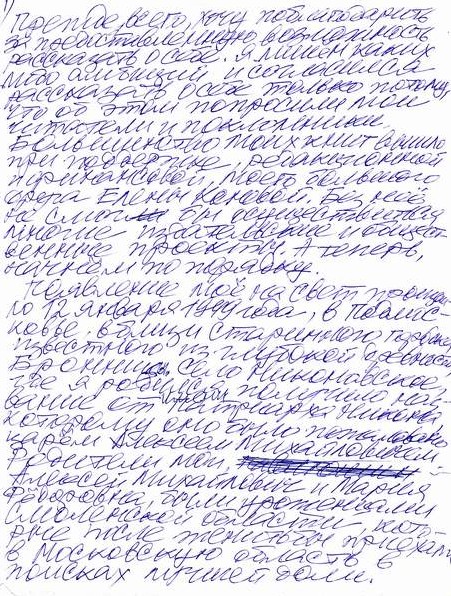 1)
Прежде всего, хочу поблагодарить
за предоставленную возможность
рассказать о себе. Я лишён каких
либо амбиций и согласился
рассказать о себе только потому,
что об этом попросили мои
читатели и поклонники.
Большинство моих книг вышло
при поддержке, редакционной
и финансовой, моего большого
друга Елены Коновой. Без неё
не смог бы осуществиться
многие издательские и общест-
венные проекты. А теперь,
начнём по порядку.
Появление моё на свет произош-
ло 12 января 1949 года, в Подмос-
ковье, вблизи старинного городка
известного из глубокой древности
Бронниц. Село Никоновское,
где я родился получило наз-
вание от патриарха Никона
которому оно было пожаловано
царём Алексеем Михайловичем
Родители мои,
Алексей Михайлович и Мария
Фёдоровна, были уроженцами
Смоленской области, кото-
рые после женитьбы приехали
в Московскую область в
поисках лучшей доли.